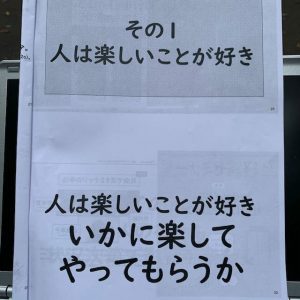 その1
人は楽しいことが好き
人は楽しいことが好き
いかに楽して
やってもらうか